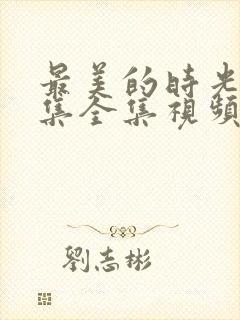 最美的時光
集全集視頻
劉志彬